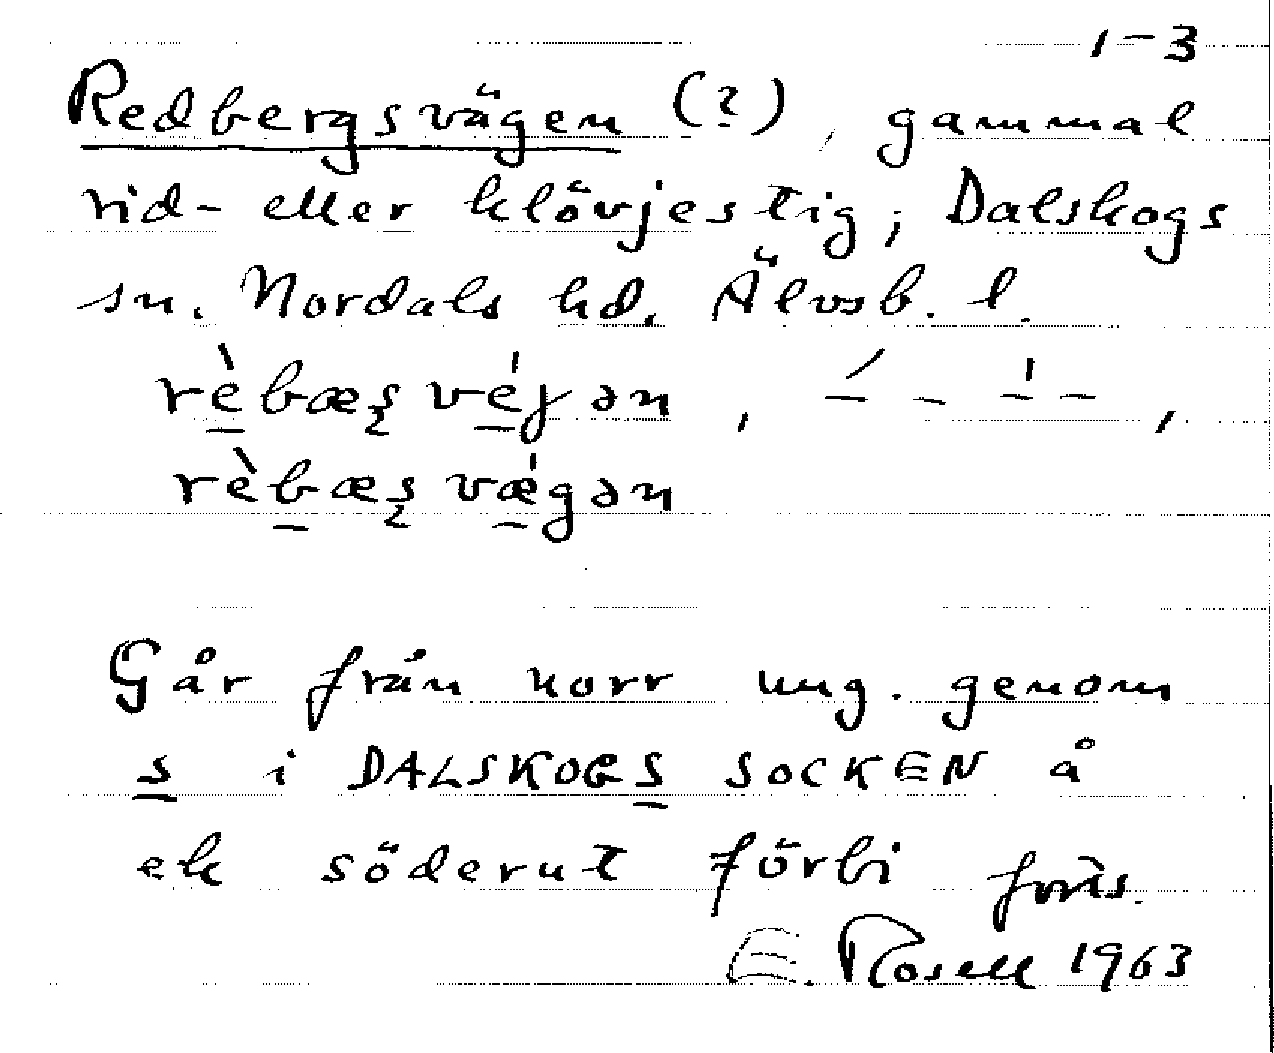 1-3
Redbergsvägen (?), gammal
rid- eller klövjestig, Dalskogs
sn. Nordals hd. Älvsb. l.
rèbæʂ véjən, – - –́ –,
rèbæʂ vǽgən
Går från norr ung. genom
s i DALSKOGS SOCKEN å
ek söderut förbi forts.
E. Rosell 1963